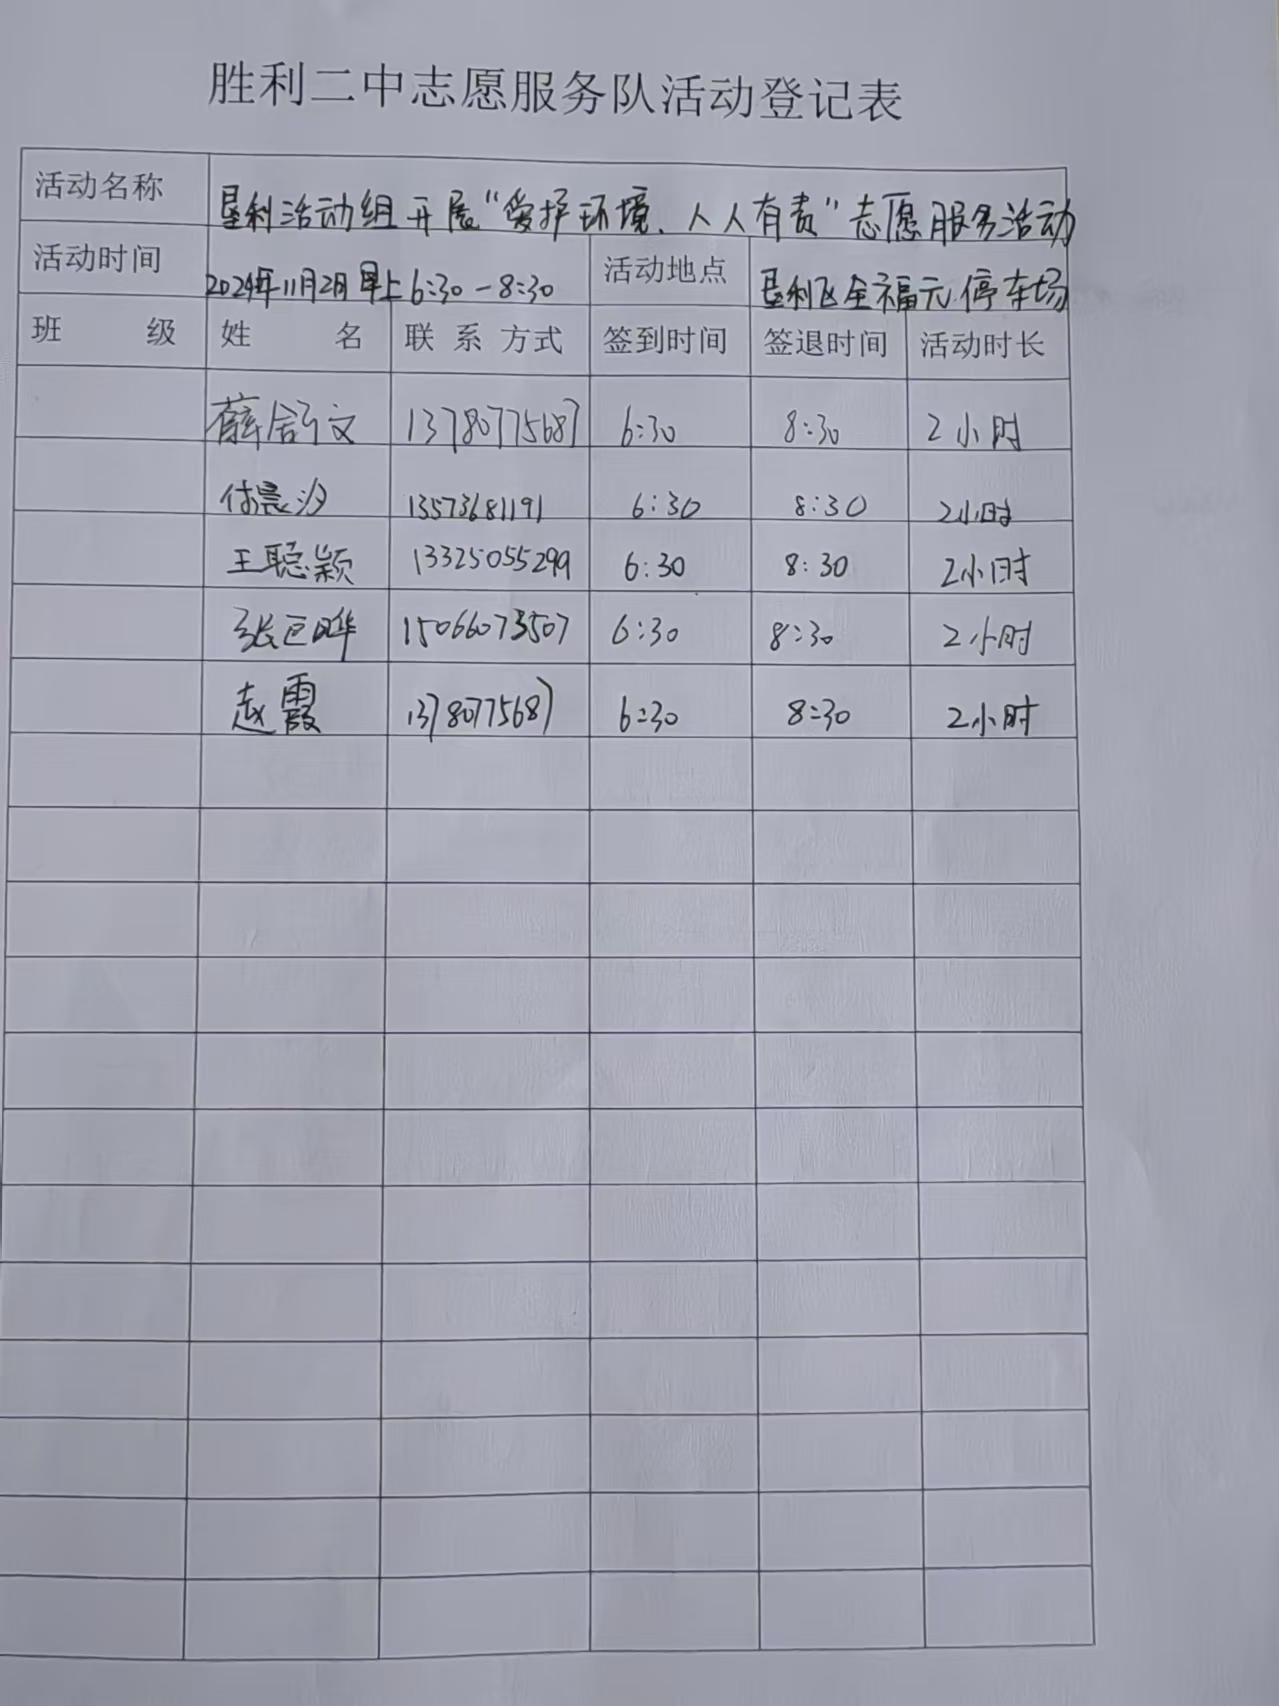 胜利二中志愿服务队活动登记表
活动名称 垦利活动组开展“爱护环境、人人有责”志愿服务活动
活动时间 2024年11月2日早上6:30-8:30 活动地点 垦利区全福元停车场
班 级 姓 名 联系方式 签到时间 签退时间 活动时长
薛舒文 13780775687 6:30 8:30 2小时
付晨汐 13573681191 6:30 8:30 2小时
王聪颖 13325055299 6:30 8:30 2小时
张巨晔 15066073507 6:30 8:30 2小时
赵霞 13780775687 6:30 8:30 2小时